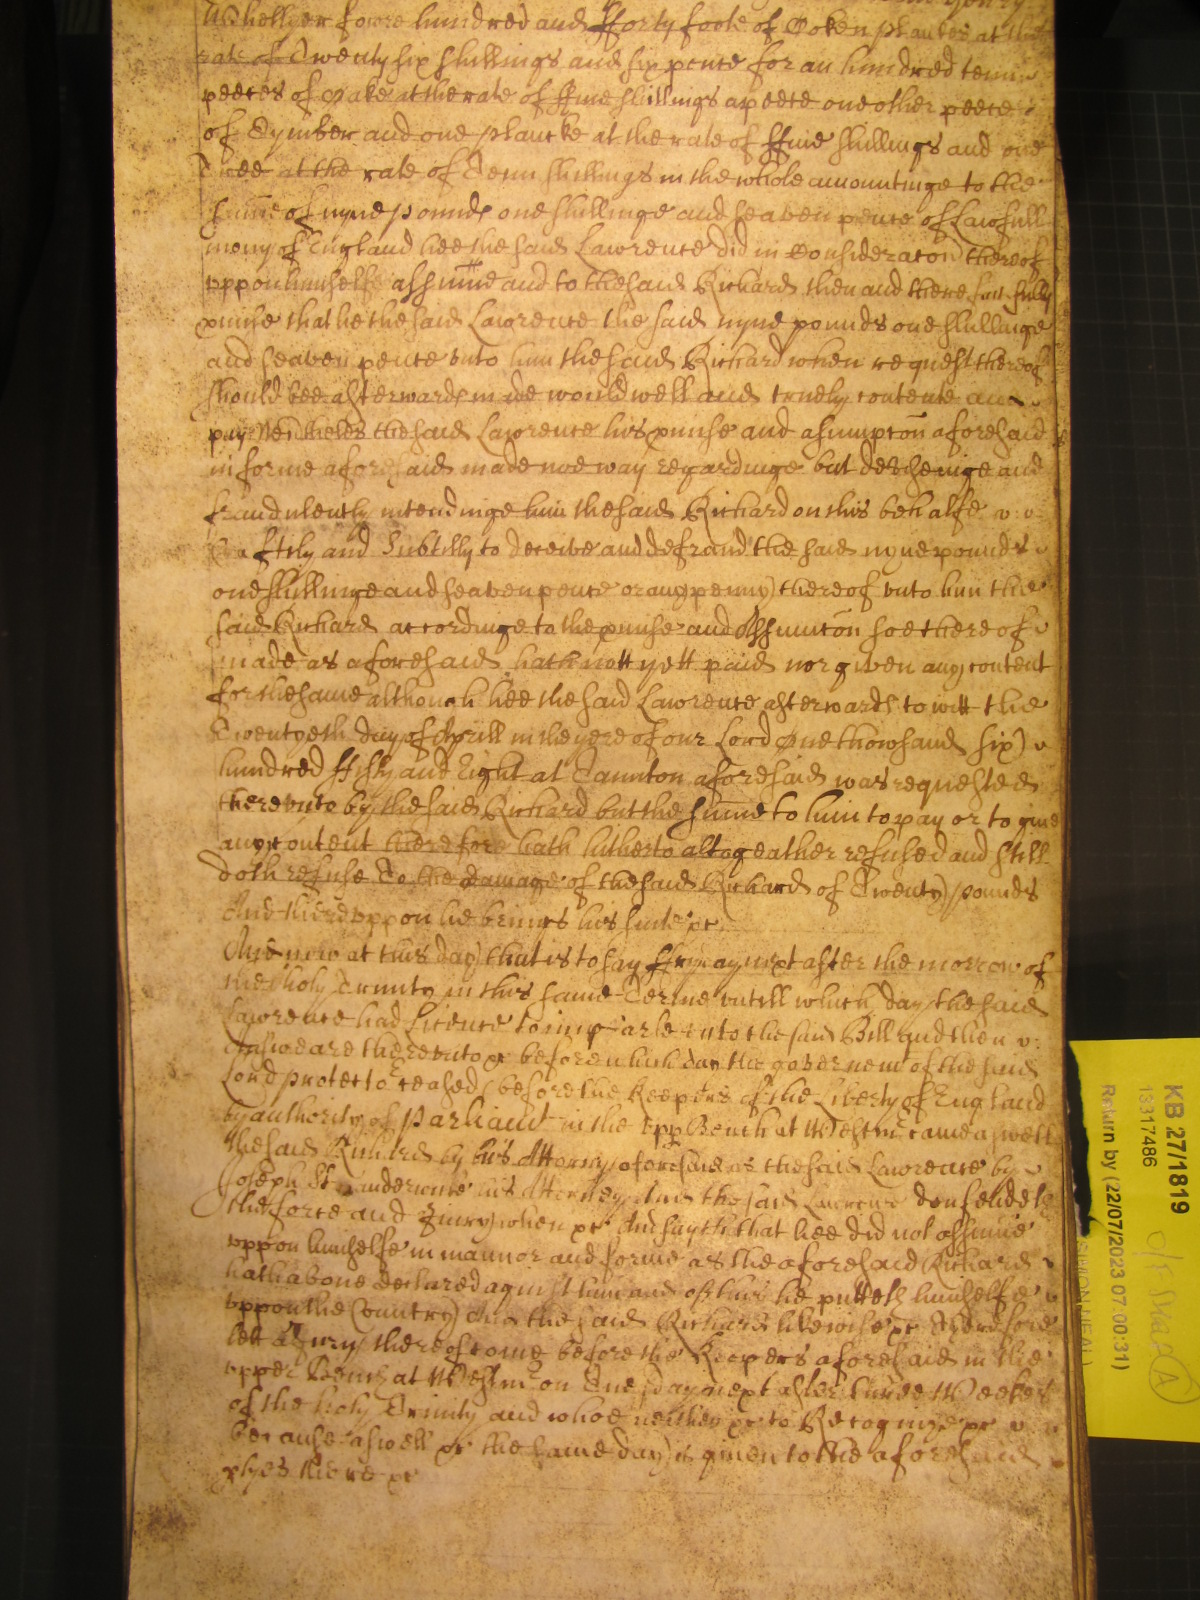 Whellyer fowre hundred and fforty foote of Oken plankes at the
rate of Twenty six shillings and six pence for an hundred tenn
peeces of Oake at the rate of ffive shillings a peece one other peece
of Tymber and one plancke at the rate of ffive shillings and one
Tree at the rate of Tenn shillings in the whole amountinge to the
summe of nyne pounds one shillinge and seaven pence of Lawfull
mony of England hee the said Lawrence did in consideracon thereof
uppon himselfe assume and to the said Richard then and there faithfully
pmise that he the said Lawrence the said nyne pounds one shillinge
and seaven pence unto him the said Richard when request thereof
should bee afterwards made would well and truely contente and
pay Nevtheles the said Lawrence his pmise and asumpcon aforesaid
in forme aforesaid made noe way regardinge but deceheinge and
fraudulently intendinge him the said Richard on this behalfe
Craftily and Subtilly to deceive and defraud the said nyne pounds
one shillinge and seaven pence or any penny thereof unto him the
said Richard accordinge to the pmise and Assumcon soe thereof
made as aforesaid hath nott yett paid nor given any content
for the same although hee the said Lawrence afterwards to witt the
Twentyeth day of Aprill in the yere of our Lord One thowsand six
hundred ffifty and Eight at Taunton aforesaid was requested
thereunto by the said Richard but the summe to him to pay or to give
any content therefore hath hitherto altogeather refused and still
doth refuse To the damage of the said Richard of Twenty pounds
And thereuppon he brings his suite &c
And now at this day that is to say ffryday next after the morrow of
the holy Trinity in this same Terme untill which day the said
Lawrence had Licence to imparle unto the said Bill and then
answeare thereunto &c before which day the governemt of the said
Lord protector ceased before the Keepers of the Liberty of England
by authority of Parliamt in the upp Bench at Westmr came aswell
the said Richard by his Attorny aforesaid as the said Lawrence by
Joseph his Attorney And the said Lawrence defendeth
the force and Jnury when &c And sayth that hee did not assume
uppon himselfe in mannor and forme as the aforesaid Richard
hath above declared against him and of this he putteth himselfe
uppon the Country And the said Richard likewise &c Therefore
lett a Jury thereof come before the Keepers aforesaid in the
upper Bench at Westmr on Tuesday next after three Weekes
of the holy Trinity and whoe neither &c to Recognize &c
because aswell &c the same day is given to the aforesaid
ptyes there &c
KB 27/1819
13317486
Return by (22/07/2023 07:00:31)